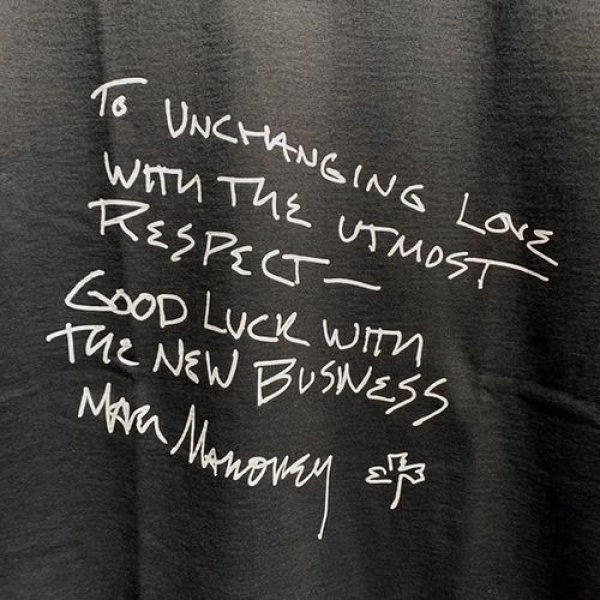 To UNCHANGING LOVE
WITH THE UTMOST
RESPECT—
GOOD LUCK WITH
THE NEW BUSINESS
MARK MAHONEY